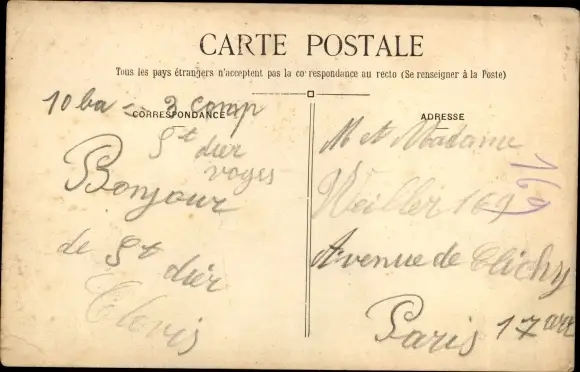 CARTE POSTALE
Tous les pays étrangers n'acceptent pas la correspondance au recto (Se renseigner à la Poste)
CORRESPONDANCE
10 ba - 3 comp
St dier
voges
Bonjour
de St dier
Clovis
ADRESSE
M et Madame
Weibler 169
169
Avenue de Clichy
Paris 17 arr